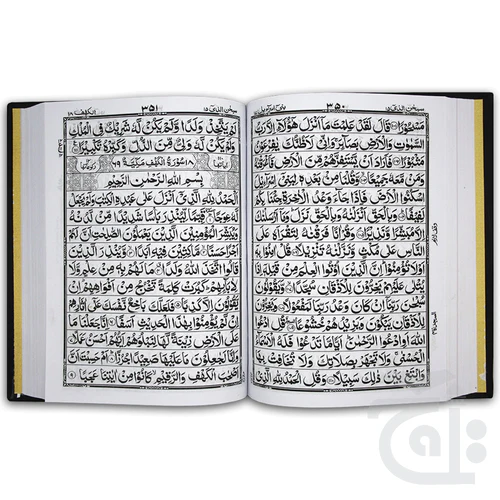 سبحٰن الذی ۱۵
۳۵۰
بنی اسرآءیل ۱۷
مَسْحُوْرًا قَالَ لَقَدْ عَلِمْتَ مَاۤ اَنْزَلَ هٰۤؤُلَآءِ اِلَّا رَبُّ
السَّمٰوٰتِ وَالْاَرْضِ بَصَآئِرَ وَاِنِّیْ لَاَظُنُّكَ یٰفِرْعَوْنُ
مَثْبُوْرًا فَاَرَادَ اَنْ یَّسْتَفِزَّهُمْ مِّنَ الْاَرْضِ فَاَغْرَقْنٰهُ
وَمَنْ مَّعَهٗ جَمِیْعًا وَّقُلْنَا مِنْۢ بَعْدِهٖ لِبَنِیْۤ اِسْرَآءِیْلَ
اسْكُنُوا الْاَرْضَ فَاِذَا جَآءَ وَعْدُ الْاٰخِرَةِ جِئْنَا بِكُمْ
لَفِیْفًا وَبِالْحَقِّ اَنْزَلْنٰهُ وَبِالْحَقِّ نَزَلَ وَمَاۤ اَرْسَلْنٰكَ
اِلَّا مُبَشِّرًا وَّنَذِیْرًا وَقُرْاٰنًا فَرَقْنٰهُ لِتَقْرَاَهٗ
عَلَى النَّاسِ عَلٰى مُكْثٍ وَّنَزَّلْنٰهُ تَنْزِیْلًا قُلْ اٰمِنُوْا بِهٖۤ
اَوْ لَا تُؤْمِنُوْا اِنَّ الَّذِیْنَ اُوْتُوا الْعِلْمَ مِنْ قَبْلِهٖۤ اِذَا یُتْلٰى
عَلَیْهِمْ یَخِرُّوْنَ لِلْاَذْقَانِ سُجَّدًا وَّیَقُوْلُوْنَ
سُبْحٰنَ رَبِّنَاۤ اِنْ كَانَ وَعْدُ رَبِّنَا لَمَفْعُوْلًا وَیَخِرُّوْنَ
لِلْاَذْقَانِ یَبْكُوْنَ وَیَزِیْدُهُمْ خُشُوْعًا قُلِ ادْعُوا
اللّٰهَ اَوِ ادْعُوا الرَّحْمٰنَ اَیًّا مَّا تَدْعُوْا فَلَهُ الْاَسْمَآءُ
الْحُسْنٰى وَلَا تَجْهَرْ بِصَلَاتِكَ وَلَا تُخَافِتْ بِهَا
وَابْتَغِ بَیْنَ ذٰلِكَ سَبِیْلًا وَقُلِ الْحَمْدُ لِلّٰهِ الَّذِیْ
سبحٰن الذی ۱۵
۳۵۱
الكهف ۱۸
لَمْ یَتَّخِذْ وَلَدًا وَّلَمْ یَكُنْ لَّهٗ شَرِیْكٌ فِی الْمُلْكِ
وَلَمْ یَكُنْ لَّهٗ وَلِیٌّ مِّنَ الذُّلِّ وَكَبِّرْهُ تَكْبِیْرًا
۱۸ سُوْرَةُ الْكَهْفِ مَكِّیَّةٌ ۶۹
بِسْمِ اللّٰهِ الرَّحْمٰنِ الرَّحِیْمِ
اَلْحَمْدُ لِلّٰهِ الَّذِیْۤ اَنْزَلَ عَلٰى عَبْدِهِ الْكِتٰبَ وَلَمْ یَجْعَلْ
لَّهٗ عِوَجًا قَیِّمًا لِّیُنْذِرَ بَاْسًا شَدِیْدًا مِّنْ لَّدُنْهُ
وَیُبَشِّرَ الْمُؤْمِنِیْنَ الَّذِیْنَ یَعْمَلُوْنَ الصّٰلِحٰتِ اَنَّ لَهُمْ
اَجْرًا حَسَنًا مَّاكِثِیْنَ فِیْهِ اَبَدًا وَّیُنْذِرَ الَّذِیْنَ
قَالُوا اتَّخَذَ اللّٰهُ وَلَدًا مَا لَهُمْ بِهٖ مِنْ عِلْمٍ وَّلَا
لِاٰبَآئِهِمْ كَبُرَتْ كَلِمَةً تَخْرُجُ مِنْ اَفْوَاهِهِمْ اِنْ
یَّقُوْلُوْنَ اِلَّا كَذِبًا فَلَعَلَّكَ بَاخِعٌ نَّفْسَكَ عَلٰۤى اٰثَارِهِمْ
اِنْ لَّمْ یُؤْمِنُوْا بِهٰذَا الْحَدِیْثِ اَسَفًا اِنَّا جَعَلْنَا مَا
عَلَى الْاَرْضِ زِیْنَةً لَّهَا لِنَبْلُوَهُمْ اَیُّهُمْ اَحْسَنُ عَمَلًا
وَاِنَّا لَجٰعِلُوْنَ مَا عَلَیْهَا صَعِیْدًا جُرُزًا اَمْ حَسِبْتَ اَنَّ
اَصْحٰبَ الْكَهْفِ وَالرَّقِیْمِ كَانُوْا مِنْ اٰیٰتِنَا عَجَبًا